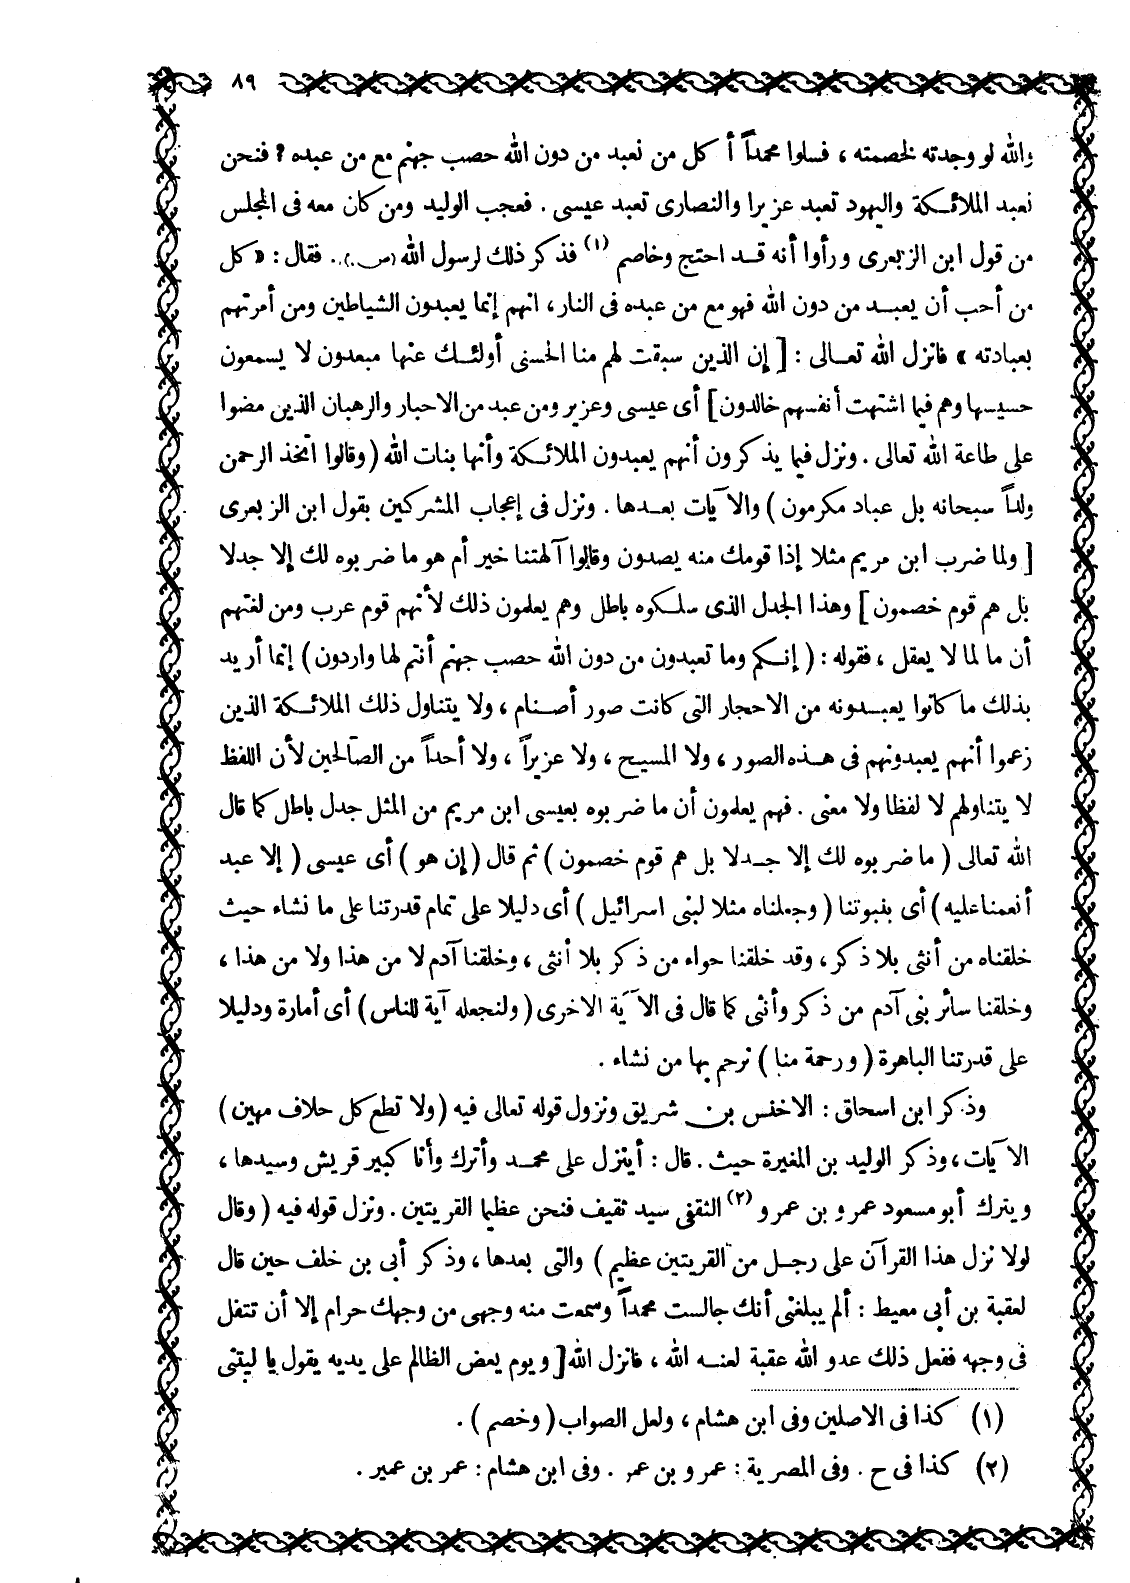 ٨٩
والله لو وجدته لخصمته ، فسلوا محمداً أ كل من نعبد من دون الله حصب جهنم مع من عبده ؟ فنحن
نعبد الملائكة واليهود تعبد عزيرا والنصارى تعبد عيسى . فعجب الوليد ومن كان معه فى المجلس
من قول ابن الزبعرى ورأوا أنه قد احتج وخاصم (١) فذكر ذلك لرسول الله (ص.). فقال : « كل
من أحب أن يعبد من دون الله فهو مع من عبده فى النار ، انهم إنما يعبدون الشياطين ومن أمرتهم
بعبادته » فانزل الله تعالى : [ إن الذين سبقت لهم منا الحسنى أولئك عنها مبعدون لا يسمعون
حسيسها وهم فيما اشتهت أنفسهم خالدون ] أى عيسى وعزير ومن عبد من الاحبار والرهبان الذين مضوا
على طاعة الله تعالى . ونزل فيما يذكرون أنهم يعبدون الملائكة وأنها بنات الله ( وقالوا اتخذ الرحمن
ولداً سبحانه بل عباد مكرمون ) والآيات بعدها . ونزل فى إعجاب المشركين بقول ابن الزبعرى
[ ولما ضرب ابن مريم مثلا إذا قومك منه يصدون وقالوا آلهتنا خير أم هو ما ضربوه لك إلا جدلا
بل هم قوم خصمون ] وهذا الجدل الذى سلكوه باطل وهم يعلمون ذلك لأنهم قوم عرب ومن لغتهم
أن ما لما لا يعقل ، فقوله : ( إنكم وما تعبدون من دون الله حصب جهنم أنتم لها واردون ) إنما أريد
بذلك ما كانوا يعبدونه من الاحجار التى كانت صور أصنام ، ولا يتناول ذلك الملائكة الذين
زعموا أنهم يعبدونهم فى هذه الصور ، ولا المسيح ، ولا عزيراً ، ولا أحداً من الصالحين لأن اللفظ
لا يتناولهم لا لفظا ولا معنى . فهم يعلمون أن ما ضربوه بعيسى ابن مريم من المثل جدل باطل كما قال
الله تعالى ( ما ضربوه لك إلا جدلا بل هم قوم خصمون ) ثم قال ( إن هو ) أى عيسى ( إلا عبد
أنعمنا عليه ) أى بنبوتنا ( وجعلناه مثلا لبنى اسرائيل ) أى دليلا على تمام قدرتنا على ما نشاء حيث
خلقناه من أنثى بلا ذكر ، وقد خلقنا حواء من ذكر بلا أنثى ، وخلقنا آدم لا من هذا ولا من هذا ،
وخلقنا سائر بنى آدم من ذكر وأنثى كما قال فى الآية الاخرى ( ولنجعله آية للناس ) أى أمارة ودليلا
على قدرتنا الباهرة ( ورحمة منا ) نرحم بها من نشاء .
وذكر ابن اسحاق : الاخنس بن شريق ونزول قوله تعالى فيه ( ولا تطع كل حلاف مهين )
الآيات ، وذكر الوليد بن المغيرة حيث . قال : أينزل على محمد وأترك وأنا كبير قريش وسيدها ،
ويترك أبو مسعود عمرو بن عمرو (٢) الثقفى سيد ثقيف فنحن عظيما القريتين . ونزل قوله فيه ( وقال
لولا نزل هذا القرآن على رجل من القريتين عظيم ) والتى بعدها ، وذكر أبى بن خلف حين قال
لعقبة بن أبى معيط : ألم يبلغنى أنك جالست محمداً وسمعت منه وجهى من وجهك حرام إلا أن تتفل
فى وجهه ففعل ذلك عدو الله عقبة لعنه الله ، فانزل الله [ ويوم يعض الظالم على يديه يقول يا ليتنى
(١) كذا فى الاصلين وفى ابن هشام ، ولعل الصواب ( وخصم ) .
(٢) كذا فى ح . وفى المصرية : عمرو بن عمر . وفى ابن هشام : عمر بن عمير .